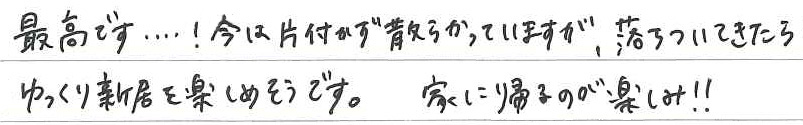 最高です....！今は片付かず散らかっていますが、落ちついてきたら
ゆっくり新居を楽しめそうです。　家に帰るのが楽しみ!!